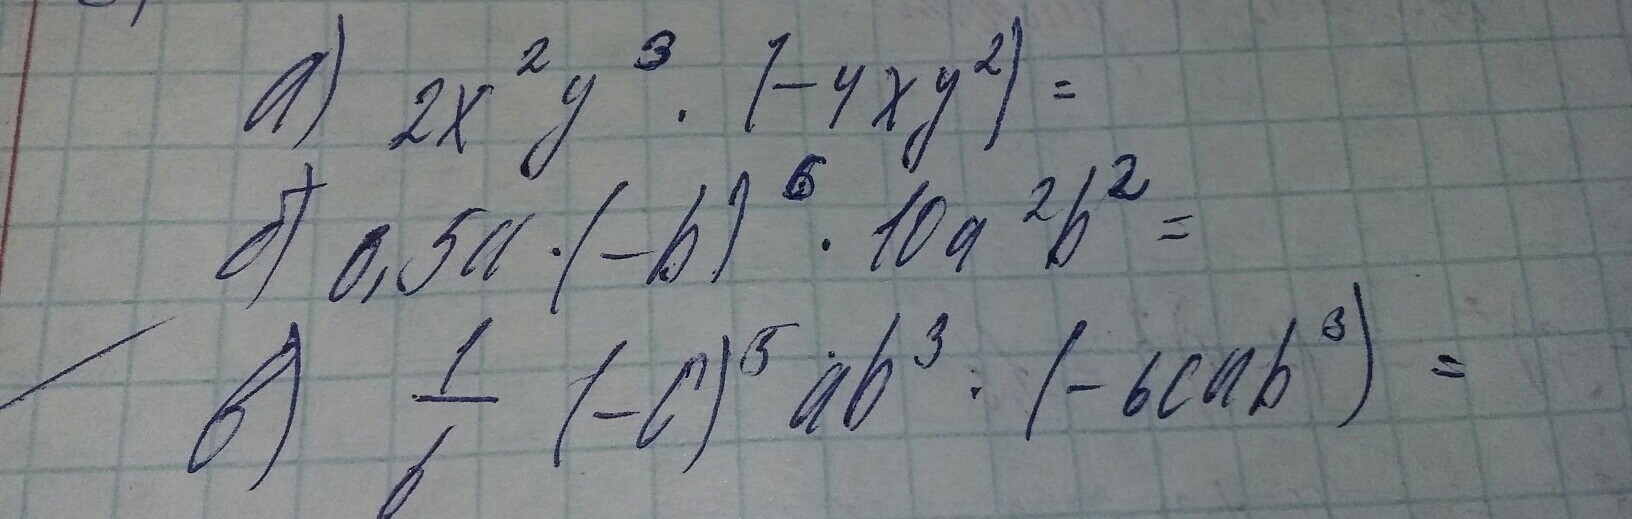 а) 2x²y³ · (-4xy²) =
б) 0,5a · (-b)⁶ · 10a²b² =
в) 1/6 (-c)⁵ ab³ · (-6cab³) =